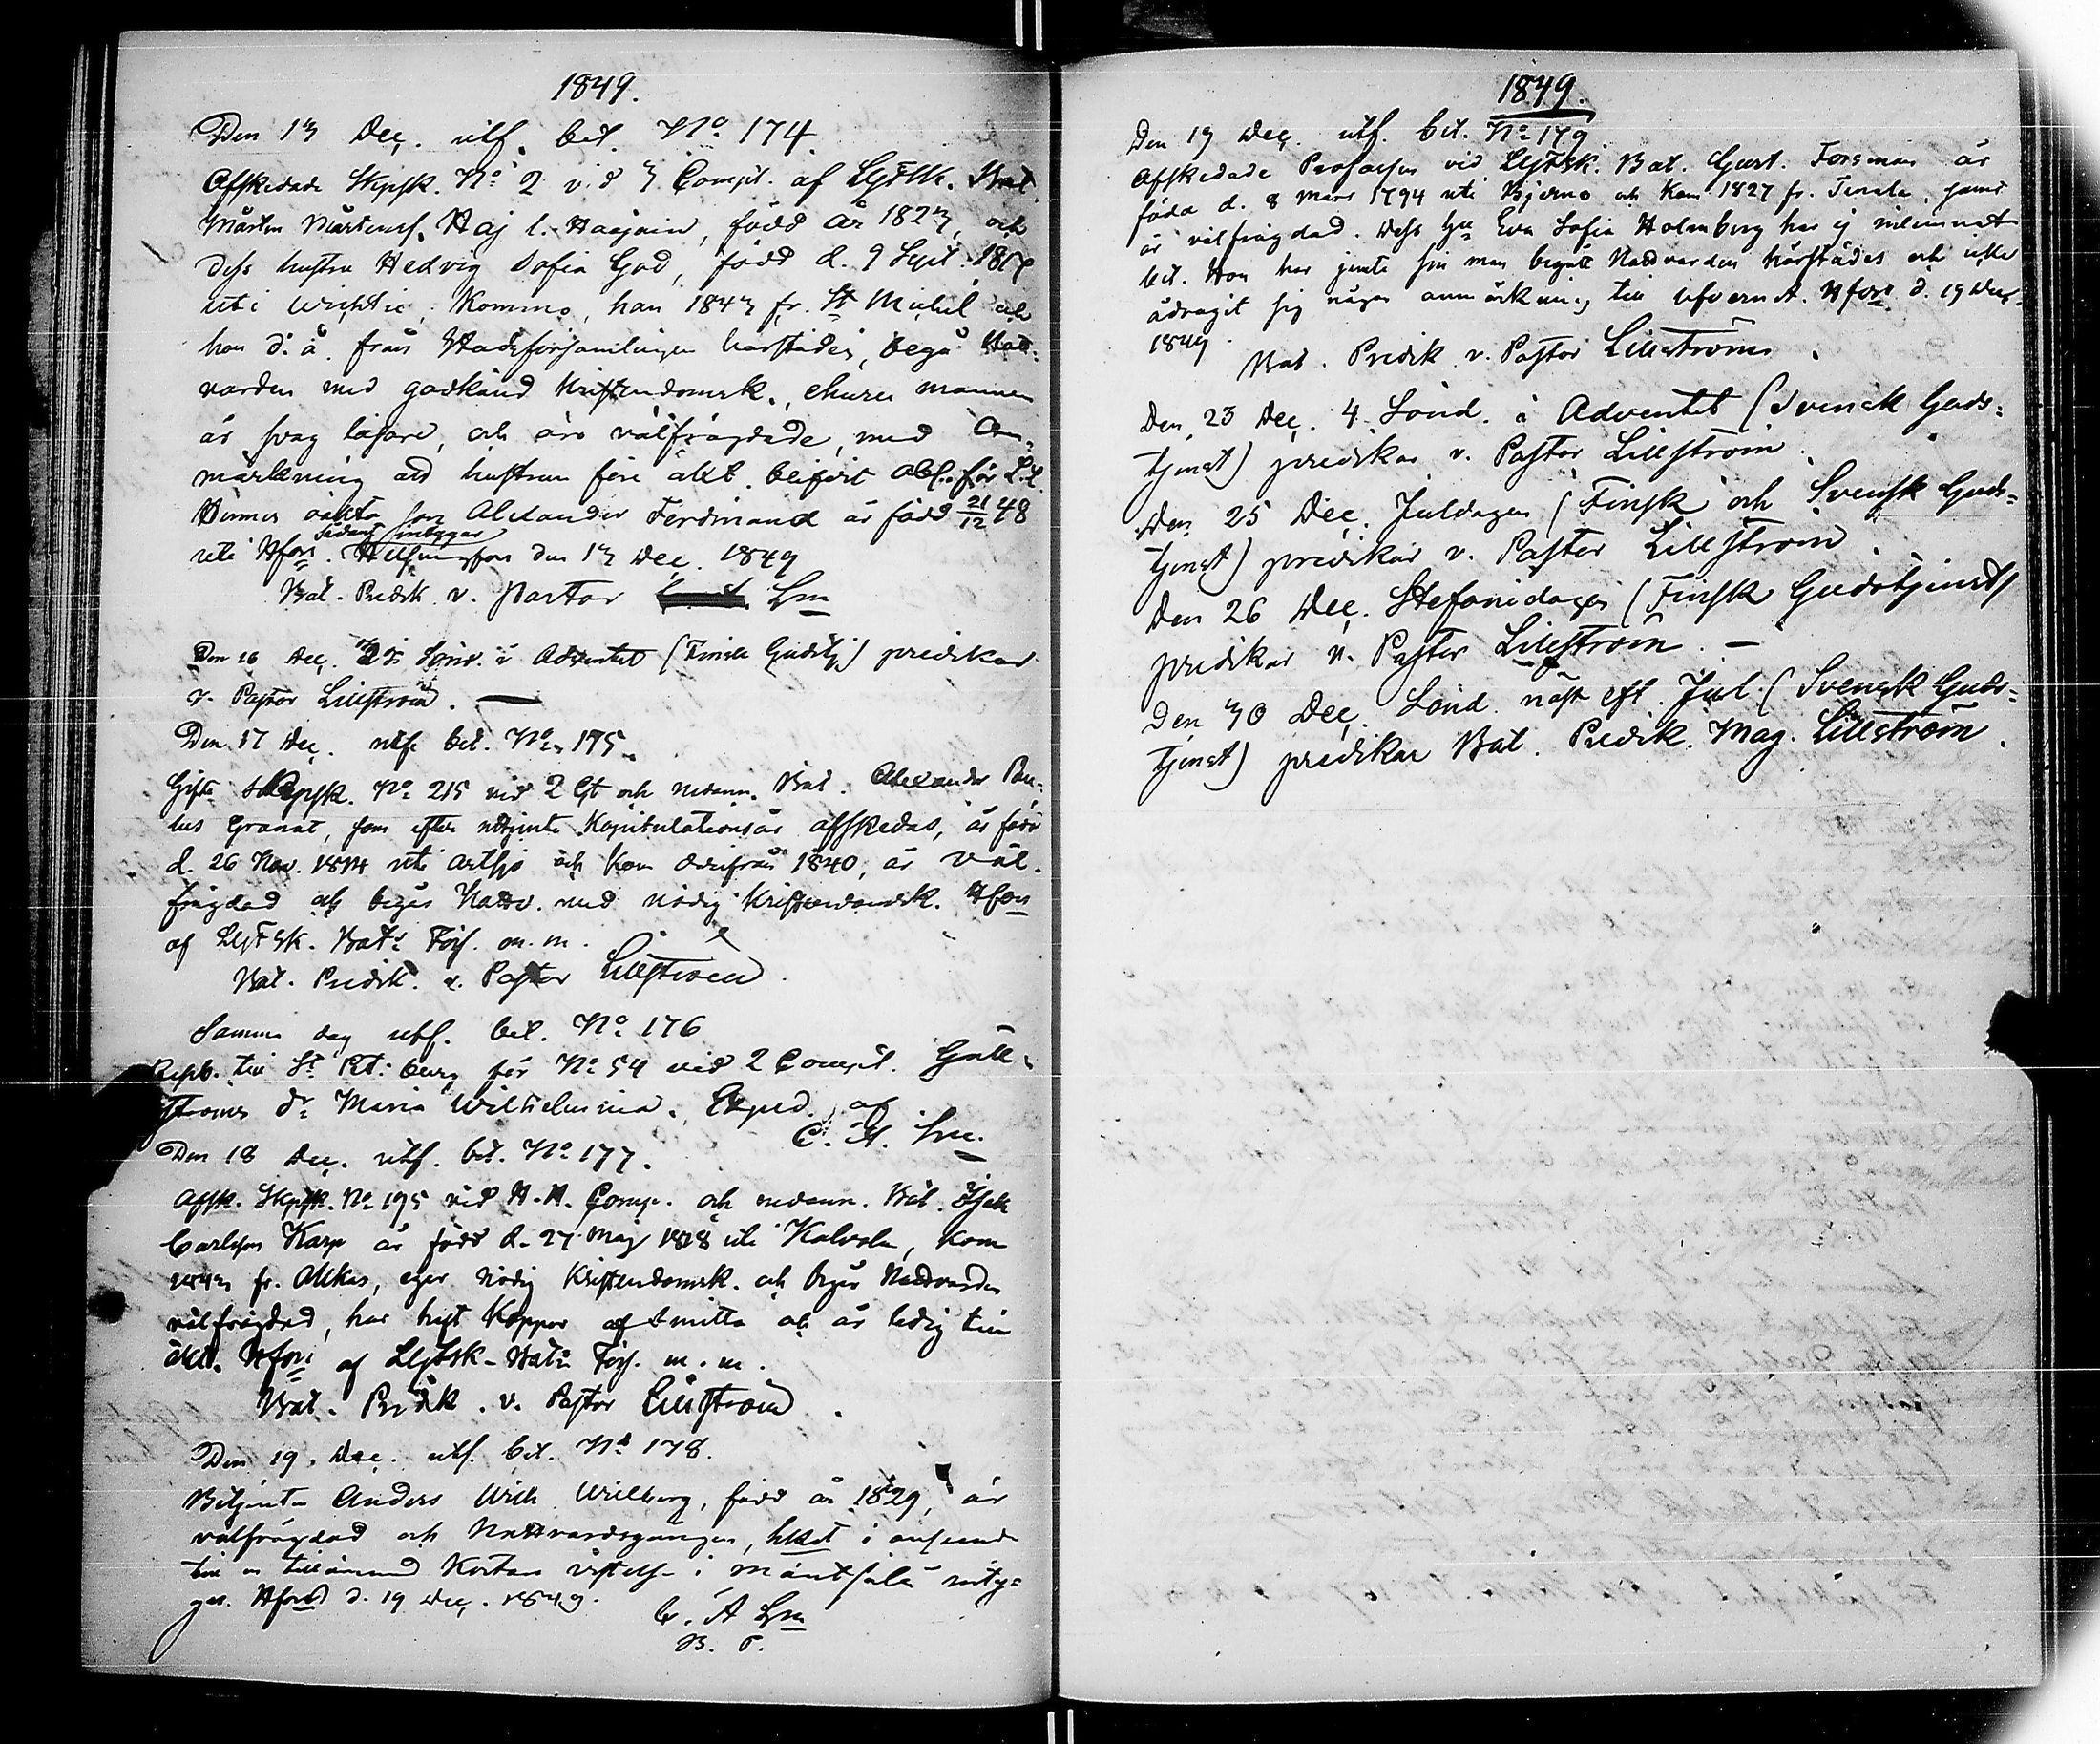 1849.
Den 13 Dec. utf. bet. No 174.
Afskedade Skpsk. No 2 vid 3 Comp. af LGFSk. Bat.
Mårten Mårtenss. Haj l. Haajain, född år 1823, och
dess hustru Hedvig Sofia God, född d. 9 Sept.
uti Wichtis, kommo, han 1843 fr. St Michel och
hon d. å. från Stadsförsamlingen härstädes, begå Natt-
varden med godkänd Kristendomsk., ehuru mannen
är svag läsare, och äro välfrägdade, med An-
märkning att hustrun före äkt. Abs. för L.
oäkta son Alexander Ferdinand är född 21/12 48
uti Hfors. Helsingfors den 13 Dec. 1849
Bat. Predik. v. Pastor Lm
Den 16 Dec. 3dje Sönd. i Adventet (Finsk Gudstj) predikar
v. Pastor Lillström. —
Den 17 Dec. utf. bet. No 175.
Gifte Skpsk. No 215 vid 2 C. och nedann. Bat. Alexander Pau-
lus Granat, som efter uttjente Kapitulationsår afskedas, är född
d. 26 Nov. 1814 uti Artsjö och kom därifrån 1840, är väl-
frägdad och begår Nattv. med nödig Kristendomsk. Hfors
af LGFSk. Bats Förs. m. m.
Bat. Predik. v. Pastor Lillström.
Samma dag utf. bet. No 176
Repb. till St. Pt:burg för No 54 vid 2 Comp. Gull-
ströms dr Maria Wilhelmina. Exped. af
C. A. Lm.
Den 18 Dec. utf. bet. No 177.
Afsk. Skpsk. No 195 vid Comp. och nedann. Bat. Isak
Carlsson Karp är född d. 27 Maj 1818 uti Kalvola, kom
1843 fr. Akkas, eger nödig Kristendomsk. och begår Nattvarden
välfrägdad, har haft Koppor af smitta och är ledig till
äkt. Hfors af LGFSk. Bats Förs. m. m.
Bat. Predik. v. Pastor Lillström.
Den 19. Dec. utf. bet. No 178.
Betjenten Anders Wilh. Willberg, född år 1829, är
välfrägdad och Nattvardsgången, hket i anseende
till en tillämnad kortare vistelse i Mäntsälä intyg-
gas. Hfors d. 19 Dec. 1849.
C. A Lm
B. P.
1849.
Den 19 Dec. utf. bet. No 179.
Afskedade Profossen vid LGFSk. Bat. Gust. Forsman är
född d. 8 Mars 1794 uti Bjerno och kom 1827 fr. Tenala, samt
är välfrägdad. Dess hu Eva Sofia Holmberg har ej inlemnat
bet. Hon har jemte sin man begått Nattvarden härstädes och icke
ådragit sig någon anmärkning till lefvernet. Hfors d. 19 Dec.
1849.
Bat. Predik. v. Pastor Lillström.
Den 23 Dec. 4. Sönd. i Adventet (Svensk Guds-
tjenst) predikar v. Pastor Lillström.
Den 25 Dec. Juldagen (Finsk och Svensk Guds-
tjenst) predikar v. Pastor Lillström.
Den 26 Dec. Stefanidagen (Finsk Gudstjenst)
predikar v. Pastor Lillström. —
Den 30 Dec. Sönd. näst eft. Jul. (Svensk Guds-
tjenst) predikar Bat. Predik. Mag. Lillström.